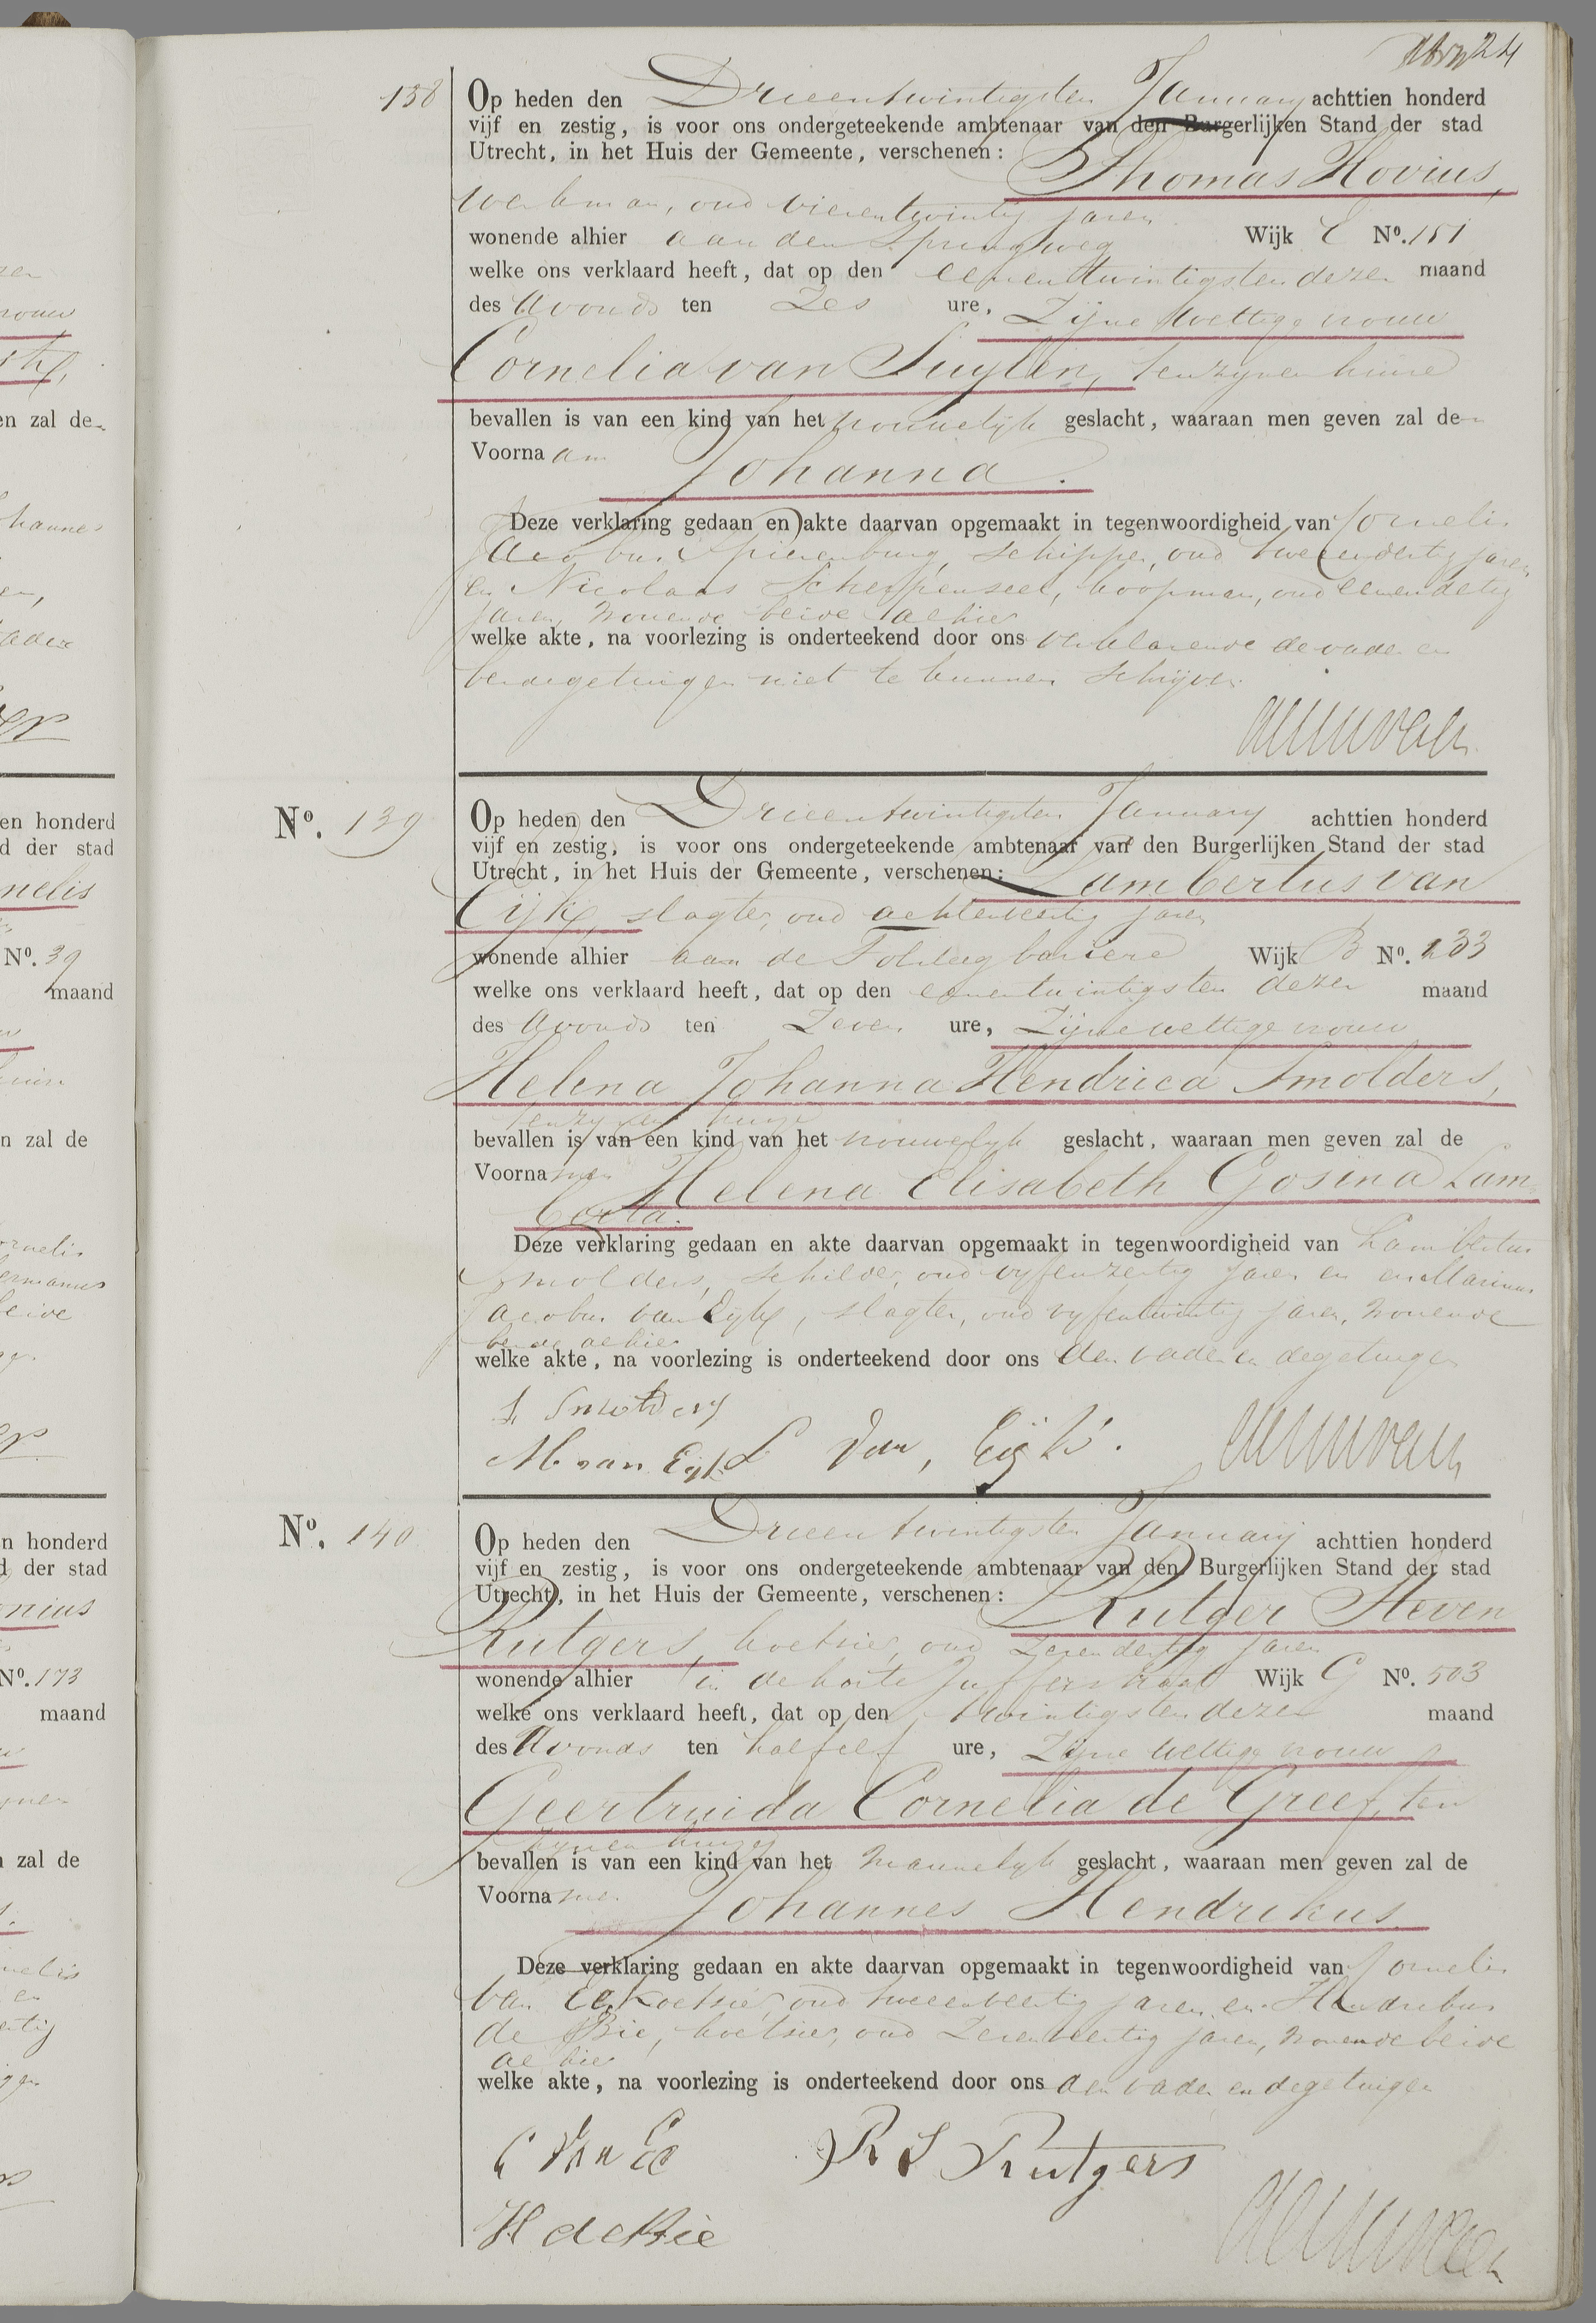 24
138
Op heden den Drieentwintigsten January achttien honderd
vijf en zestig, is voor ons ondergeteekende ambtenaar van den Burgerlijken Stand der stad
Utrecht, in het Huis der Gemeente, verschenen:
Thomas Hovius,
werkman, oud vierentwintig jaren
wonende alhier aan den Springweg Wijk E No. 151
welke ons verklaard heeft, dat op den eenentwintigsten dezer maand
des Avonds ten Zes ure, Zijne Wettige vrouw
Cornelia van Suylen, ten zynen huize
bevallen is van een kind van het vrouwelyk geslacht, waaraan men geven zal de
Voornaam Johanna.
Deze verklaring gedaan en akte daarvan opgemaakt in tegenwoordigheid van Cornelis
Jacobus Spierenburg, schipper, oud tweeendertig jaren
en Nicolaas Scherpenseel, koopman, oud eenendertig
jaren, wonende beide alhier
welke akte, na voorlezing is onderteekend door ons verklarende de vader en
beide getuigen niet te kunnen schrijven
No. 139
Op heden den Drieentwintigsten January achttien honderd
vijf en zestig, is voor ons ondergeteekende ambtenaar van den Burgerlijken Stand der stad
Utrecht, in het Huis der Gemeente, verschenen: Lambertus van
Eijk, slagter, oud achtenveertig jaren
wonende alhier aan de Tolsteegbariere Wijk B No. 133
welke ons verklaard heeft, dat op den eenentwintigsten dezer maand
des Avonds ten Zeven ure, Zijne wettige vrouw
Helena Johanna Hendrica Smolders,
ten zynen huize
bevallen is van een kind van het vrouwelyk geslacht, waaraan men geven zal de
Voornamen Helena Elisabeth Gosina Lam-
berta.
Deze verklaring gedaan en akte daarvan opgemaakt in tegenwoordigheid van Lambertus
Smolders, schilder, oud vyfenzestig jaren en en Marinus
Jacobus van Eyk, slagter, oud vyfentwintig jaren, wonende
beide alhier
welke akte, na voorlezing is onderteekend door ons den vader en de getuigen
L Smolders
M van Eyk L Van Eijk
No. 140
Op heden den Drieentwintigsten January achttien honderd
vijf en zestig, is voor ons ondergeteekende ambtenaar van den Burgerlijken Stand der stad
Utrecht, in het Huis der Gemeente, verschenen: Rutger Steven
Rutgers, koetsier, oud zevendertig jaren
wonende alhier in de korte Jufferstraat Wijk G No. 503
welke ons verklaard heeft, dat op den twintigsten dezer maand
des Avonds ten half elf ure, Zijne Wettige vrouw
Geertruida Cornelia de Greef, ten
zynen huize
bevallen is van een kind van het mannelyk geslacht, waaraan men geven zal de
Voornamen Johannes Hendrikus
Deze verklaring gedaan en akte daarvan opgemaakt in tegenwoordigheid van Cornelis
van Ee, koetsier, oud tweeenveertig jaren, en Hendrikus
de Bie, koetsier, oud zevenveertig jaren, wonende beide
alhier
welke akte, na voorlezing is onderteekend door ons den vader en de getuigen
C Van Ee R S Rutgers
H de Bie